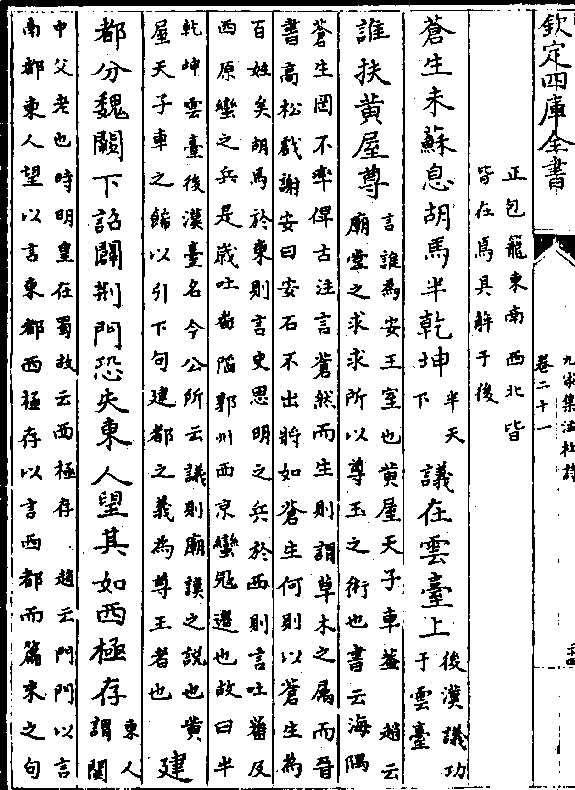 欽定四庫全書
九家集注杜詩
卷二十一
正包籠東南西北皆
皆在焉具解于後
蒼生未蘇息胡馬半乾坤
半天
下
議在雲臺上
後漢議功
于雲臺
誰扶黄屋尊
言誰為安王室也黄屋天子車蓋 趙云
廟堂之求求所以尊王之術也書云海隅
蒼生罔不率俾古注言蒼然而生則謂草木之屬而晉
書高松戲謝安曰安石不出將如蒼生何則以蒼生為
百姓矣胡馬於東則言史思明之兵於西則言吐蕃及
西原蠻之兵是歲吐蕃陷鄯州西京蠻冦邊也故曰半
乾坤雲臺後漢臺名今公所云議則廟謨之說也黄
屋天子車之餙以引下句建都之義為尊王者也
建
都分魏闕下詔闢荆門恐失東人望其如西極存
東人
謂關
中父老也時明皇在蜀故云西極存 趙云門門以言
南都東人望以言東都西極存以言西都而篇末之句